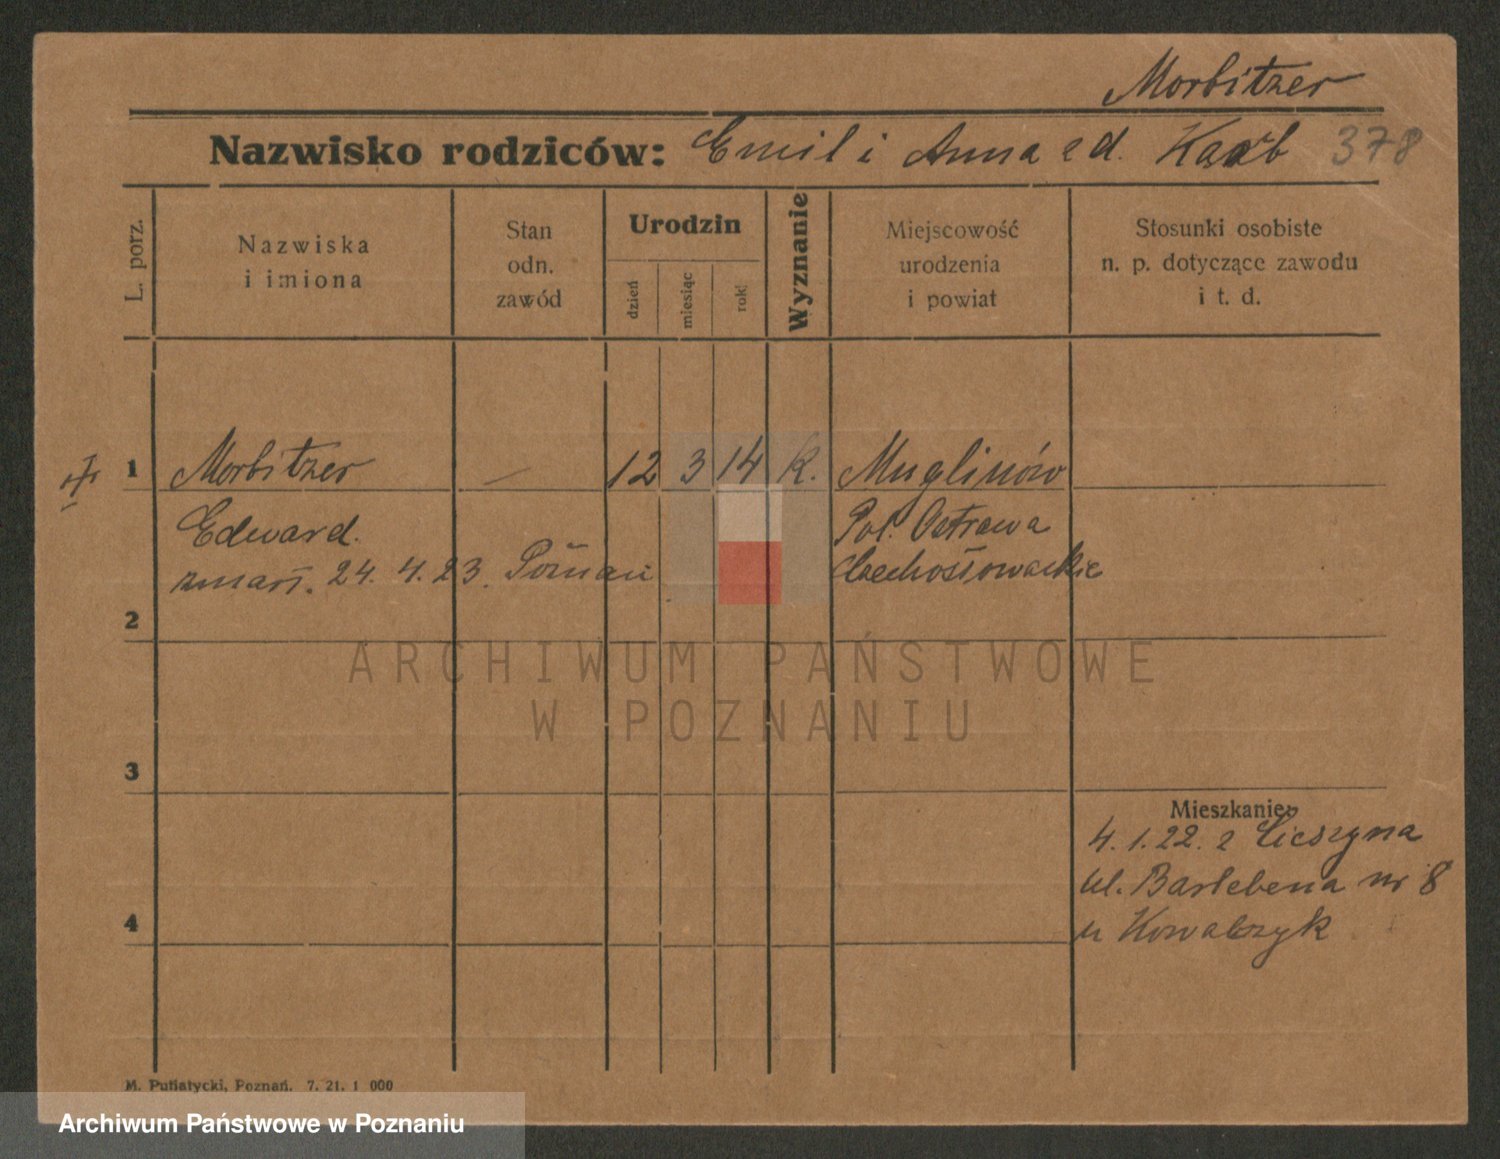 Morbitzer
Nazwisko rodziców: Emil i Anna z d. 378
L. porz.
Nazwiska
i imiona
Stan
odn.
zawód
Urodzin
dzień
miesiąc
rok
Wyznanie
Miejscowość
urodzenia
i powiat
Stosunki osobiste
n. p. dotyczące zawodu
i t. d.
1 Morbitzer — 12 3 14 K. Muglinów
Edward. Pol. Ostrawa
zmarł. 24. 4. 23. Poznań Czechosłowackie
2
ARCHIWUM PAŃSTWOWE
W POZNANIU
3
Mieszkanie:
4. 1. 22. z Cieszyna
ul. Barlebena nr 8
4 u Kowalczyk
M. Putiatycki, Poznań. 7. 21. 1 000
Archiwum Państwowe w Poznaniu